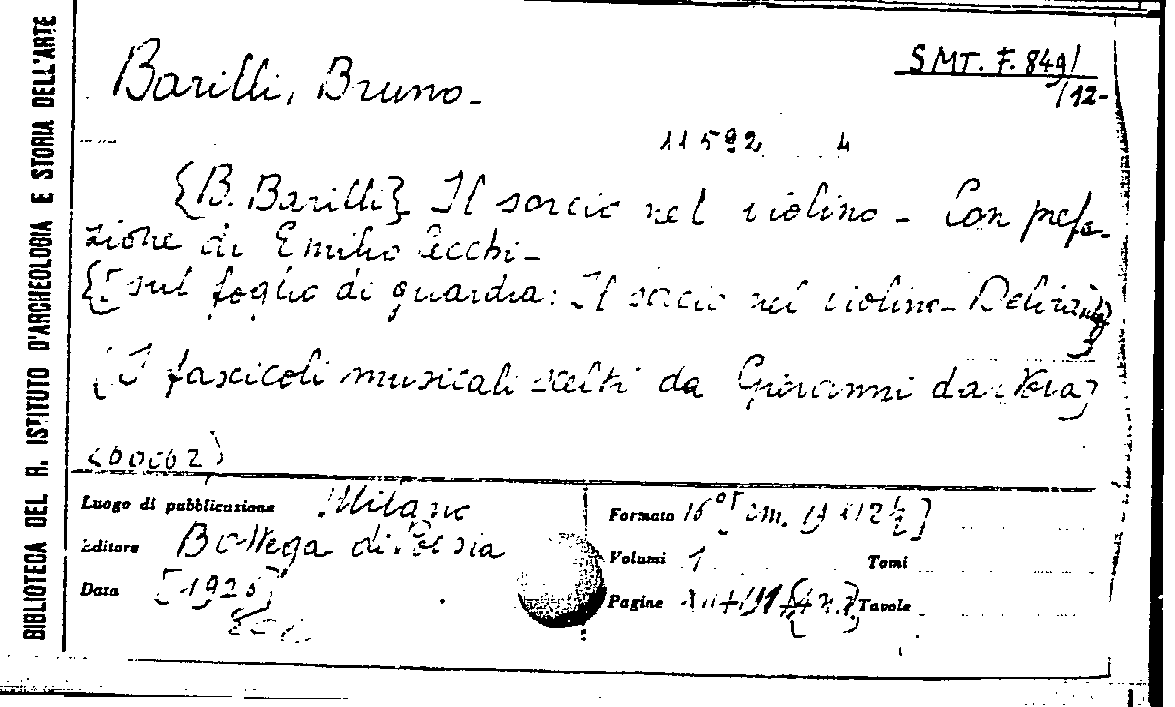 BIBLIOTECA DEL R. ISTITUTO D'ARCHEOLOGIA E STORIA DELL'ARTE
SMT. F. 849/
/12-
Barilli, Bruno-
11592 4
{B. Barilli} Il sorcio nel violino - Con prefa-
zione di Emilio Cecchi-
{[sul foglio di guardia: Il sorcio nel violino-
(I fascicoli musicali scelti da Giovanni da Nova)
Luogo di pubblicazione Milano
Editore Bottega di Poesia
Data [1925]
Formato 16° cm.
Volumi 1 Tomi
Pagine Tavole